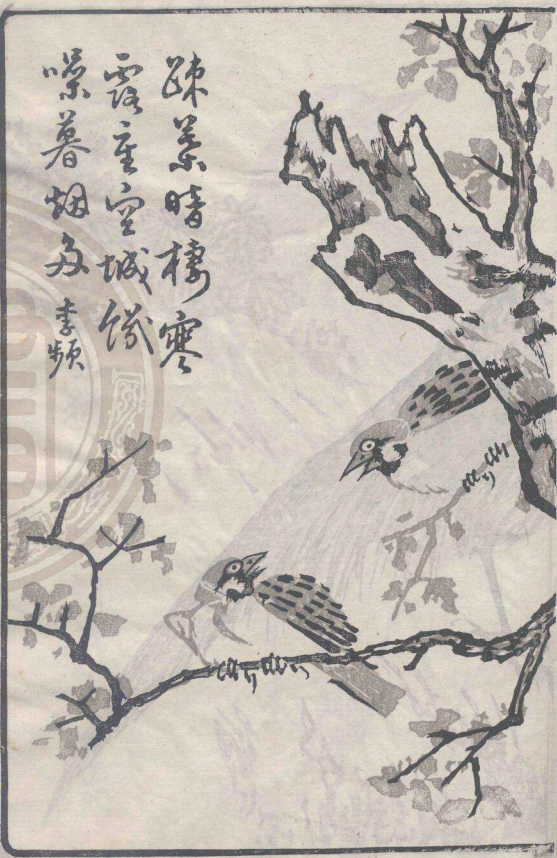 疎叶暗棲寒
露重空城饥
噪暮烟多 李頻